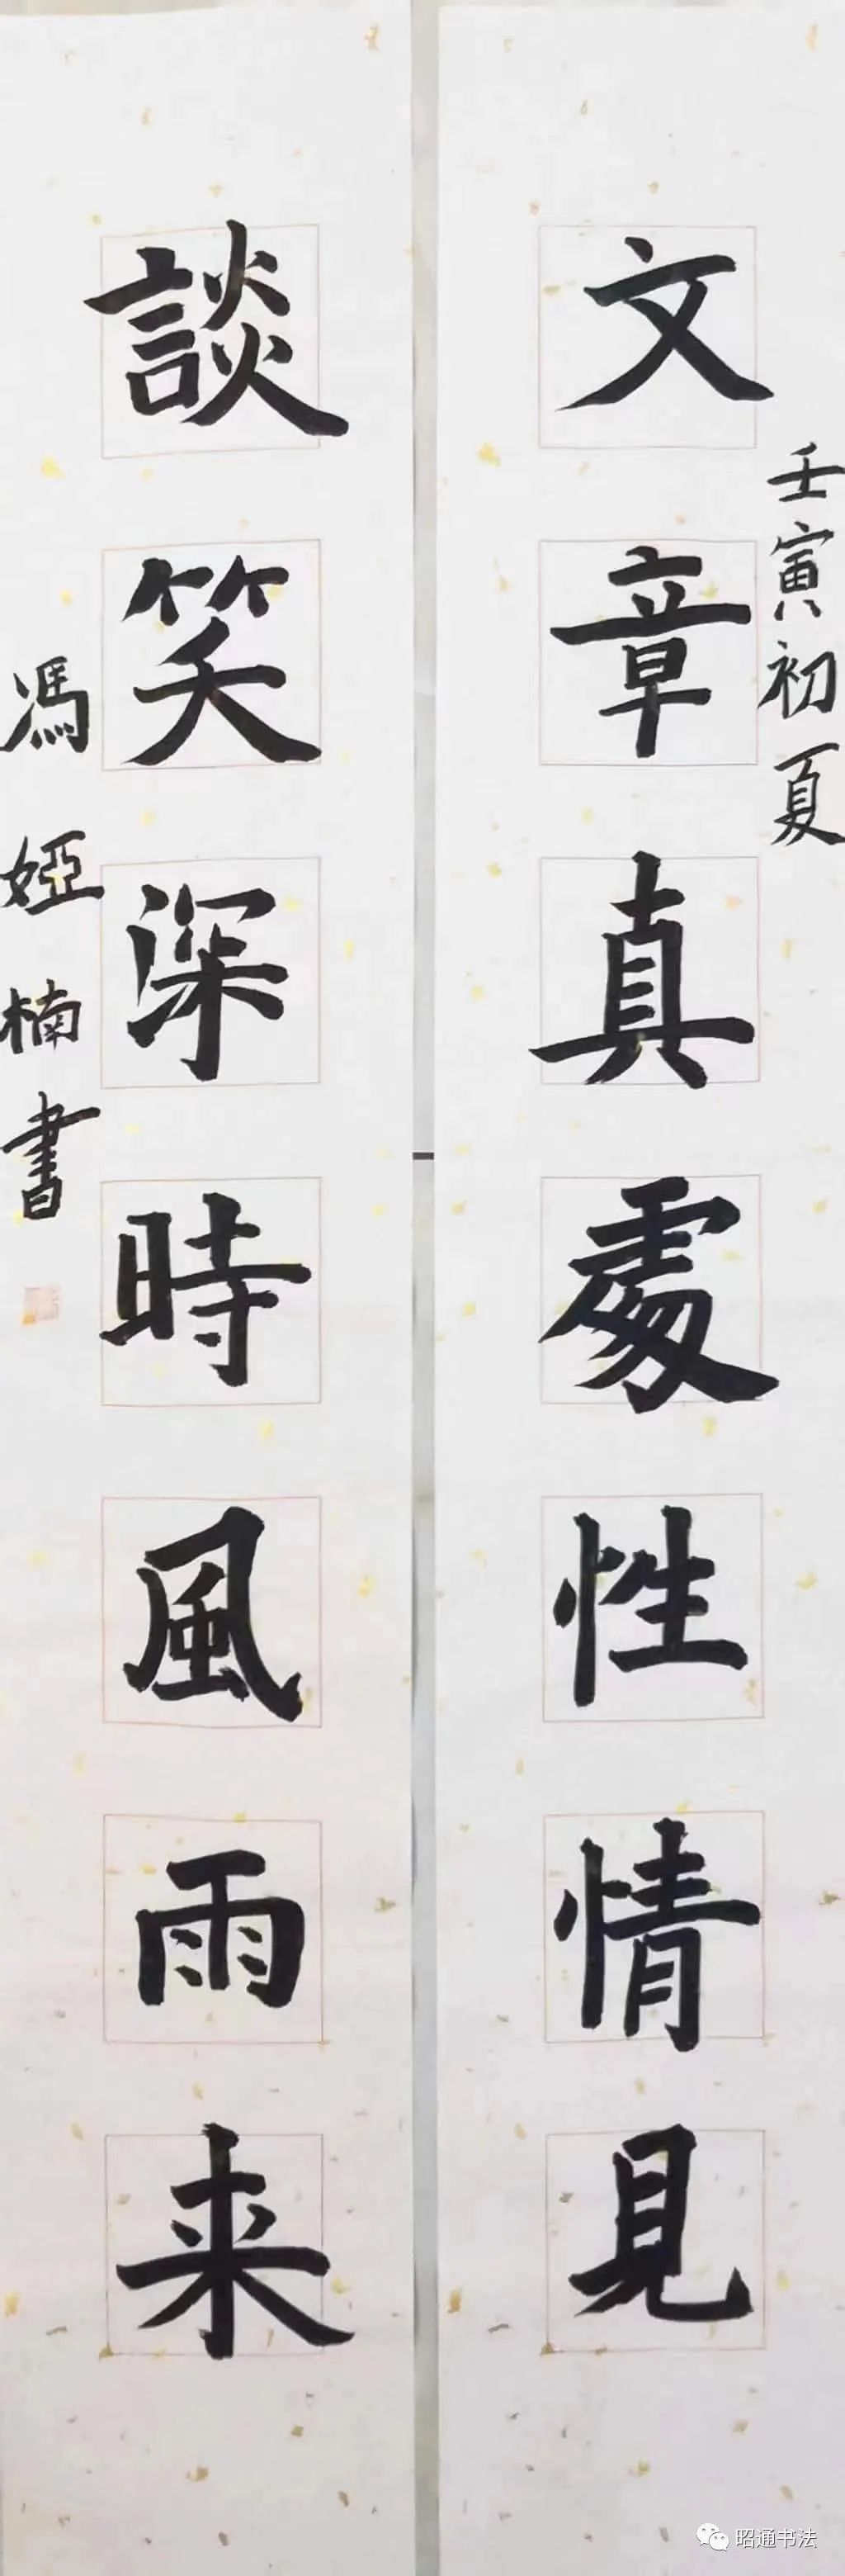 壬寅初夏
文章真處性情見
談笑深時風雨来
馮婭楠書
昭通书法